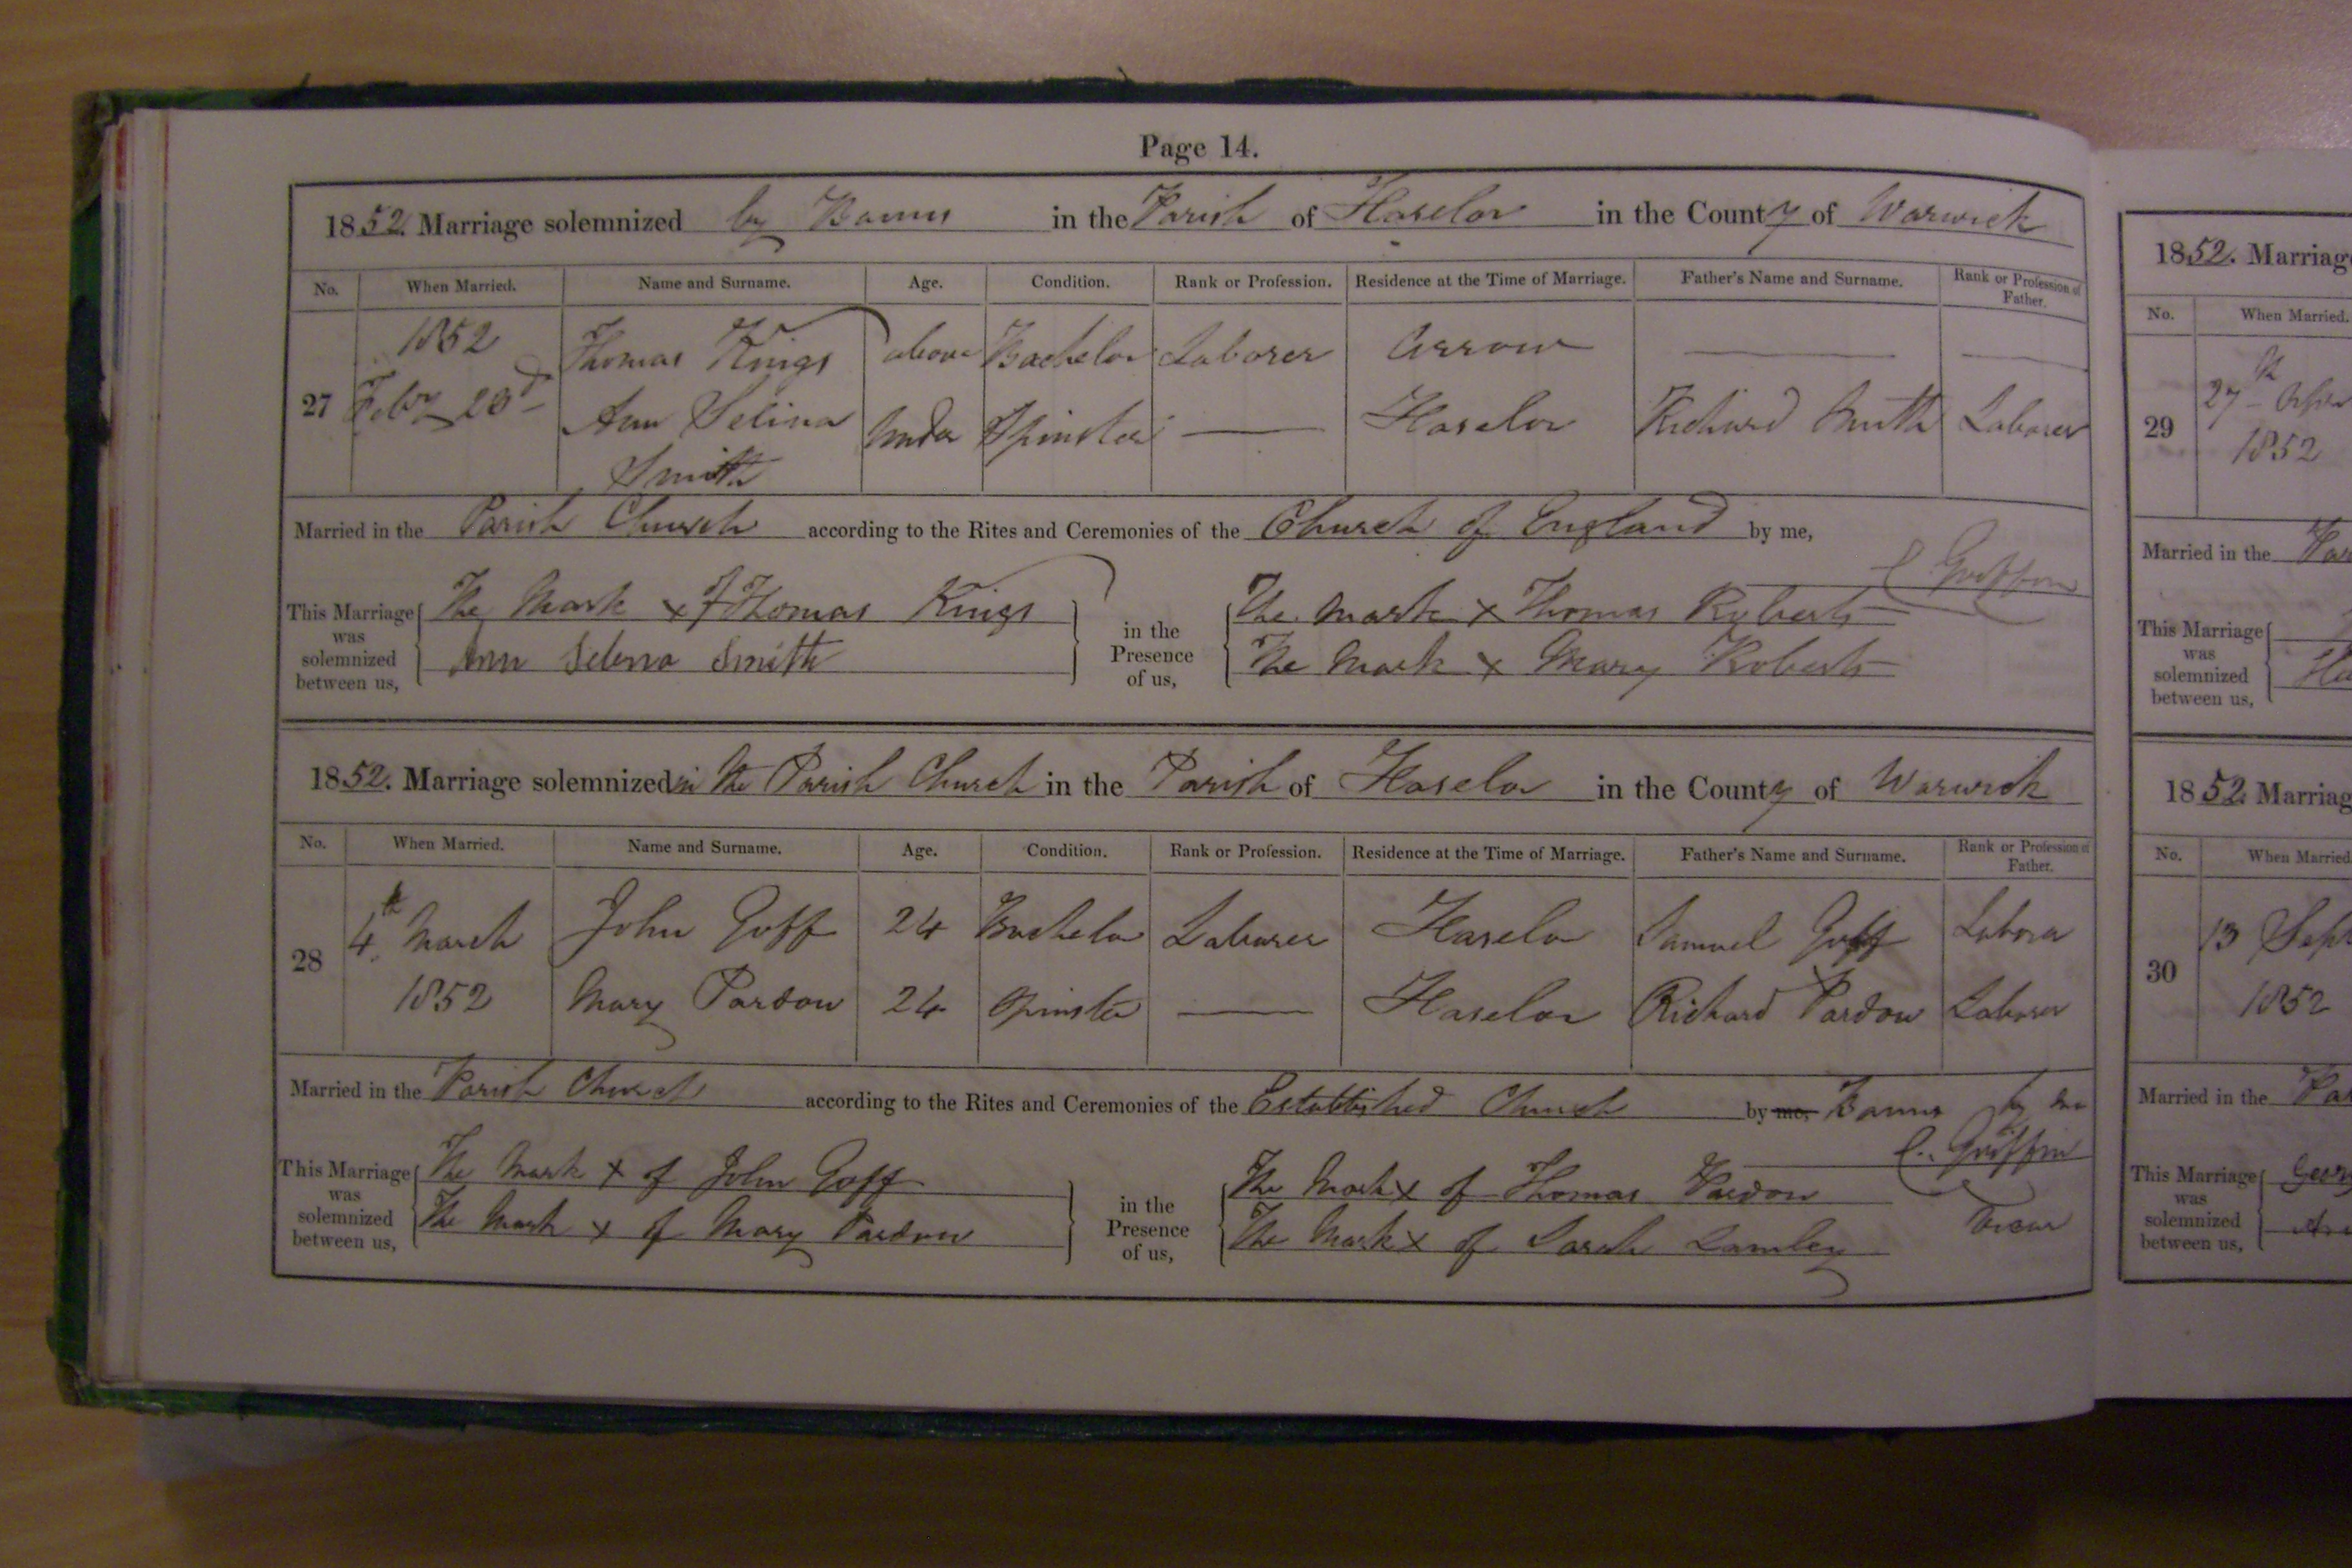 Page 14.
1852. Marriage solemnized by Banns in the Parish of Haselor in the County of Warwick
No. When Married. Name and Surname. Age. Condition. Rank or Profession. Residence at the Time of Marriage. Father's Name and Surname. Rank or Profession of Father.
27 1852 Thomas Kings above Bachelor Laborer Arrow — —
Feby 23d Ann Selina Smith Under Spinster — Haselor Richard Smith Laborer
Married in the Parish Church according to the Rites and Ceremonies of the Church of England by me,
C Griffin
This Marriage was solemnized between us, The Mark x of Thomas Kings in the Presence of us, The Mark x Thomas Roberts
Ann Selena Smith The Mark x Mary Roberts
1852. Marriage solemnized in the Parish Church in the Parish of Haselor in the County of Warwick
No. When Married. Name and Surname. Age. Condition. Rank or Profession. Residence at the Time of Marriage. Father's Name and Surname. Rank or Profession of Father.
28 4th March John Goff 24 Bachelor Laborer Haselor Samuel Goff Laborer
1852 Mary Pardow 24 Spinster — Haselor Richard Pardow Laborer
Married in the Parish Church according to the Rites and Ceremonies of the Established Church by me, Banns by me
C. Griffin
Vicar
This Marriage was solemnized between us, The Mark x of John Goff in the Presence of us, The Mark x of Thomas Pardow
The Mark x of Mary Pardow The Mark x of Sarah Lamley
1852. Marriag
No. When Married.
29 27th
1852
Married in the
This Marriage was solemnized between us,
1852 Marriag
No. When Married
30 13 Sept
1852
Married in the
This Marriage was solemnized between us,